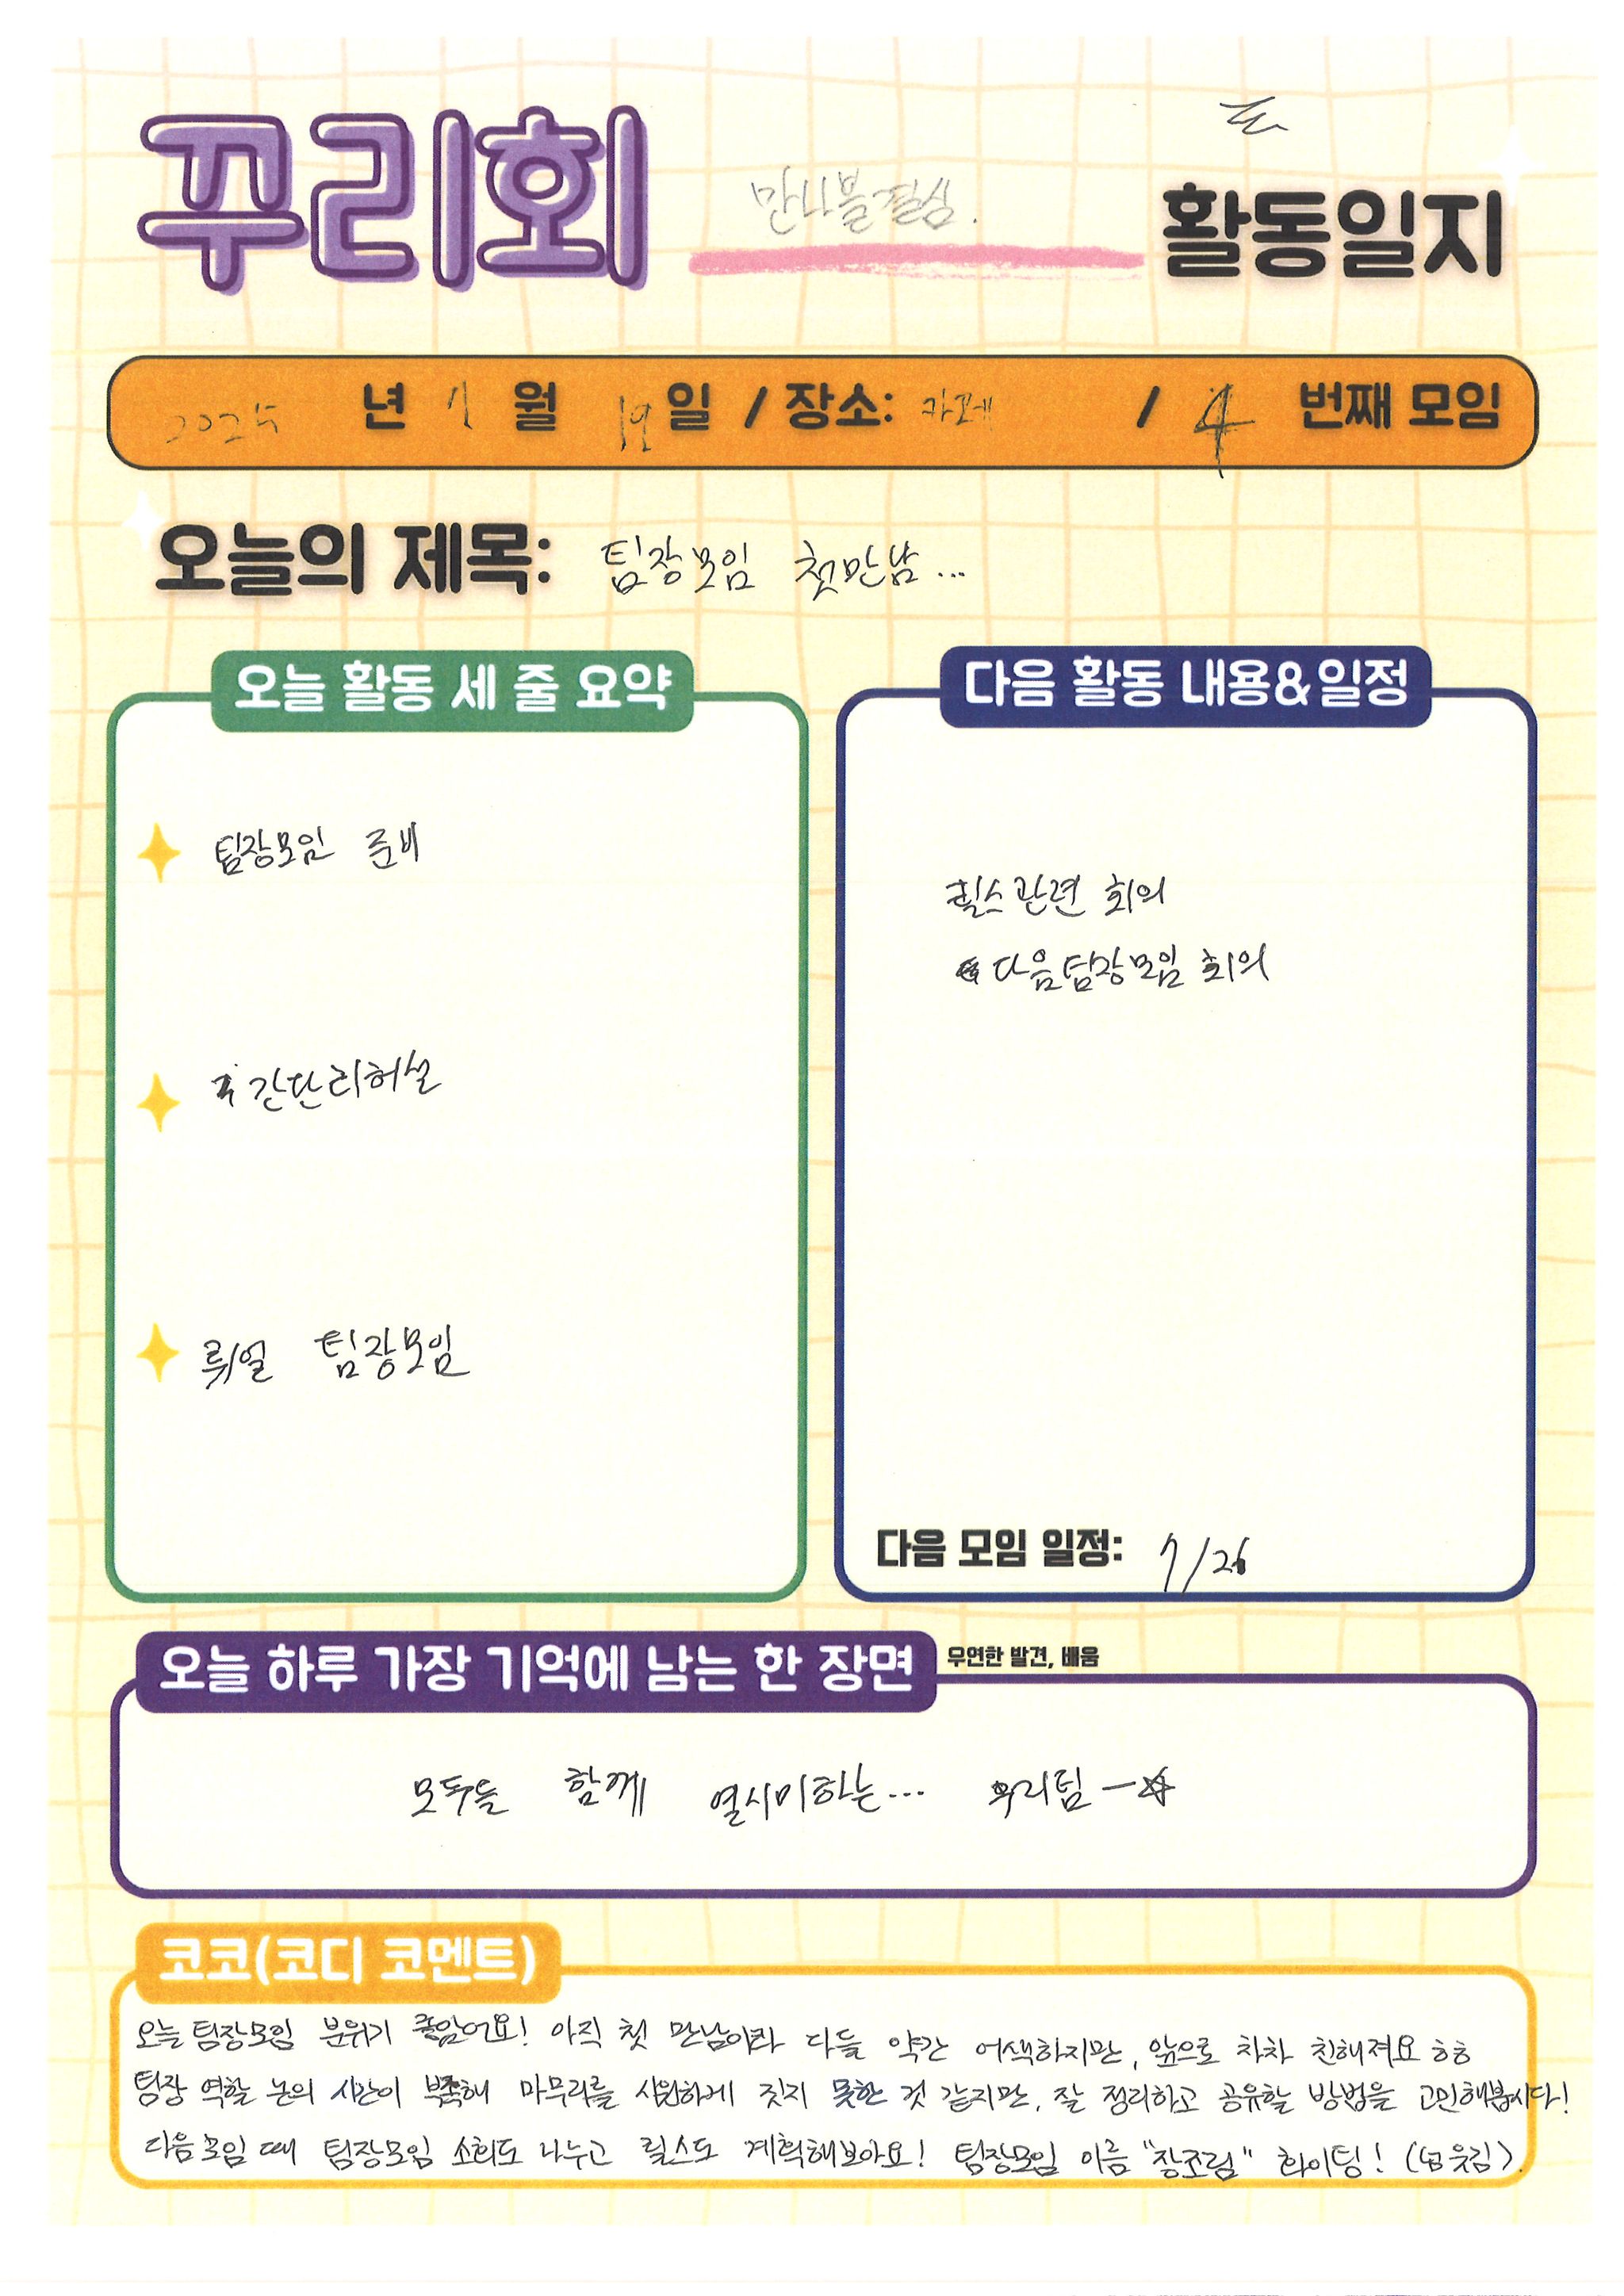 꾸리회 만나볼결심. 활동일지
2025 년 7 월 19 일 / 장소: 카페 / 4 번째 모임
오늘의 제목: 팀장모임 첫만남...
오늘 활동 세 줄 요약
팀장모임 준비
간단리허설
뤼얼 팀장모임
다음 활동 내용&일정
릴스관련 회의
다음팀장모임 회의
다음 모임 일정: 7/26
오늘 하루 가장 기억에 남는 한 장면 우연한 발견, 배움
모두들 함께 열시미하는... 우리팀-☆
코코(코디 코멘트)
오늘 팀장모임 분위기 좋았어요! 아직 첫 만남이라 다들 약간 어색하지만, 앞으로 차차 친해져요 ㅎㅎ
팀장 역할 논의 시간이 부족해 마무리를 시원하게 짓지 못한 것 같지만, 잘 정리하고 공유할 방법을 고민해봅시다!
다음 모임 때 팀장모임 소회도 나누고 릴스도 계획해보아요! 팀장모임 이름 "장조림" 화이팅! (넘 웃김)